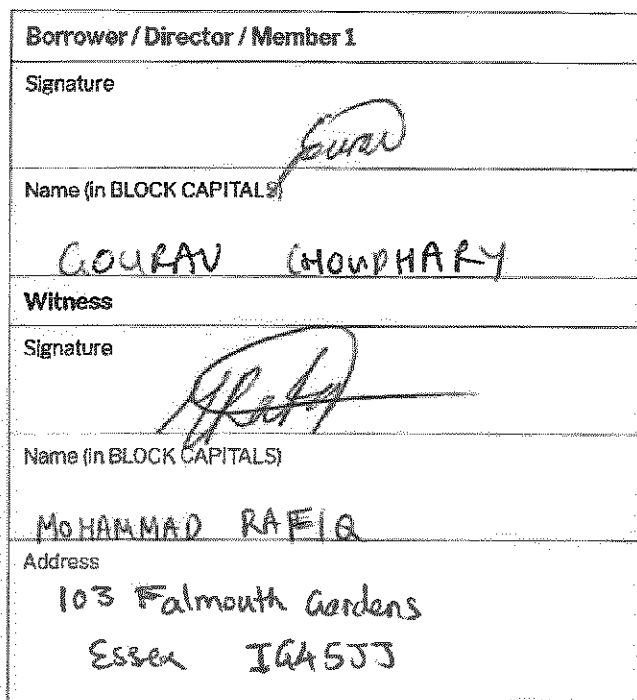 Borrower / Director / Member 1
Signature
Gourav
Name (in BLOCK CAPITALS)
GOURAV CHOUDHARY
Witness
Signature
Name (in BLOCK CAPITALS)
MOHAMMAD RAFIQ
Address
103 Falmouth Gardens
Essex IG45JJ